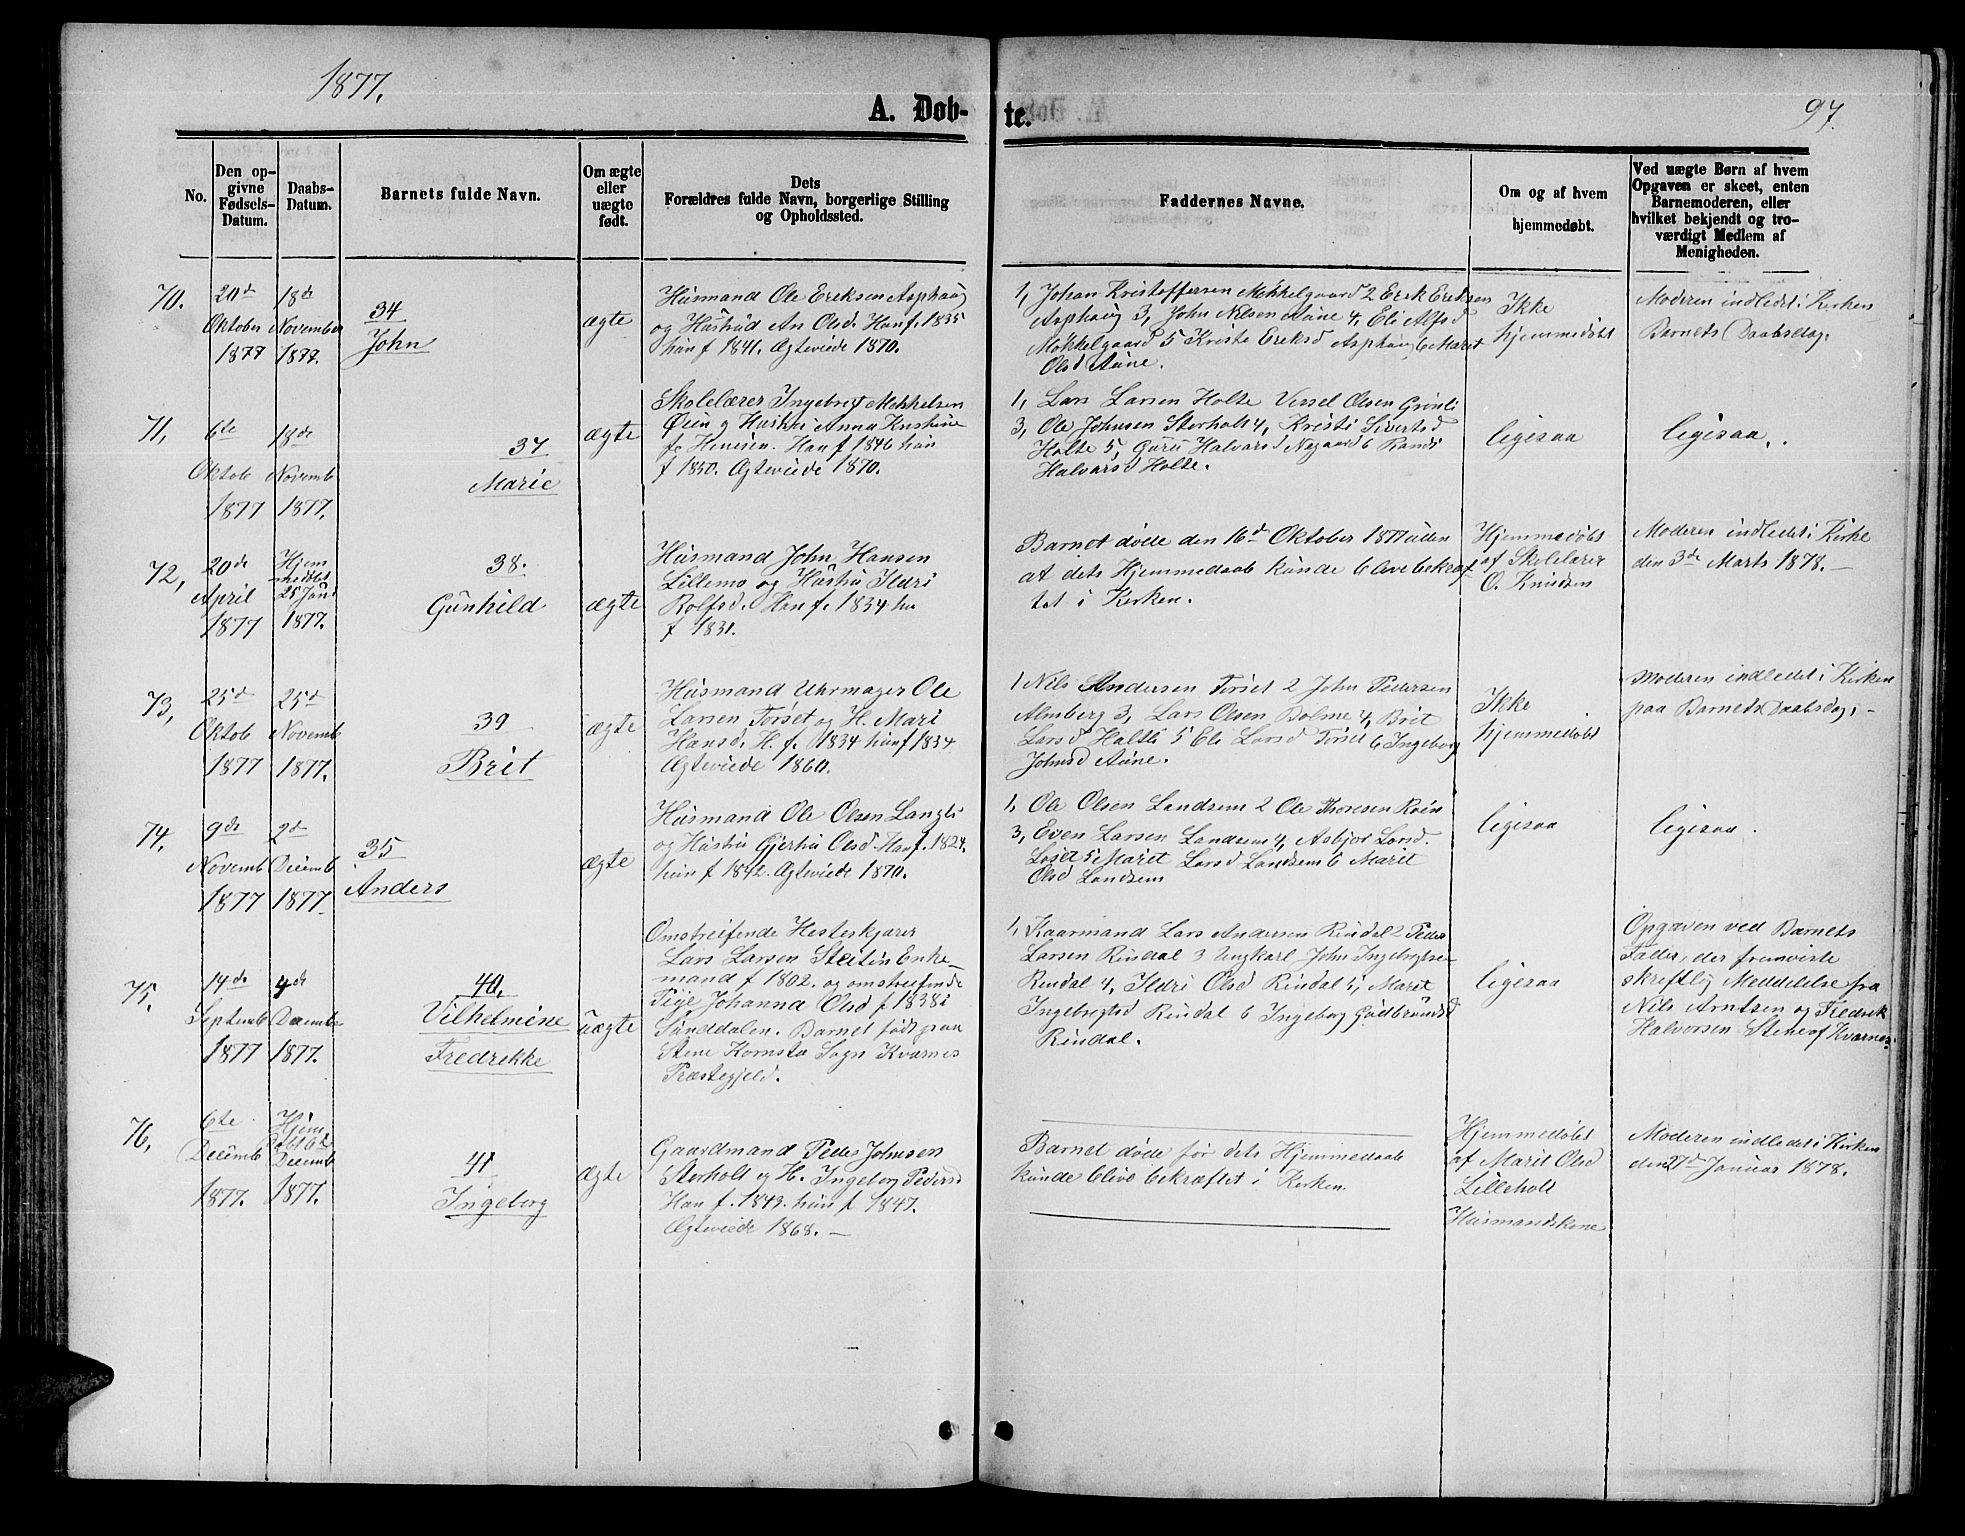 1877.
A. Døb-
te.
97.
No.
Den op-
givne
Fødsels-
Datum.
Daabs-
Datum.
Barnets fulde Navn.
Om ægte
eller
uægte
født.
Dets
Forældres fulde Navn, borgerlige Stilling
og Opholdssted.
Faddernes Navne.
Om og af hvem
hjemmedøbt.
Ved uægte Børn af hvem
Opgaven er skeet, enten
Barnemoderen, eller
hvilket bekjendt og tro-
værdigt Medlem af
Menigheden.
70.
20de
Oktober
1877
18de
November
1877.
34
John
ægte
Husmand Ole Eriksen Asphaug
og Hustrud An Olsd. Han f. 1835
hun f 1841. Ægteviede 1870.
1, Johan Kristoffersen Mokkelgaard 2 Erik Eriksen
Asphaug 3, John Nilsen Aune 4, Eli Alfsd
Mokkelgaard 5 Kristi Eriksd Asphaug 6 Marit
Olsd Aune.
Ikke
hjemmedøbt
Moderen indledet i Kirken
Barnets Daabsdag.
71,
6te
Oktob
1877
18de
Novemb
1877.
37
Marie
ægte
Skolelærer Ingebrigt Mikkelsen
Øien og Hustru Anna Kristine
f. Han f 1846 hun
f 1850. Ægteviede 1870.
1, Lars Larsen Holte Vessel Olsen Grønli
3, Ole Johnsen Storholt 4, Kristi Sivertsd
Holte 5, Guru Halvarsd Nygaard 6 Randi
Halvarsd Holte.
ligesaa
ligesaa.
72,
20de
April
1877
Hjem
medøbt
25 Juni
1877.
38.
Gunhild
ægte
Husmand John Hansen
Lillemo og Hustru Ildri
Rolfsd. Han f. 1834 hu
f 1831.
Barnet døde den 16de Oktober 1877 uden
at dets Hjemmedaab kunde blive bekræf
tet i Kirken.
Hjemmedøbt
af Skolelærer
O. Knudsen
Moderen indledet i Kirke
den 3de Marts 1878.—
73,
25de
Oktob
1877
25de
Novemb
1877.
39
Brit
ægte
Husmand Uhrmager Ole
Larsen Torset og H. Mari
Hansd. H. f. 1834 hun f 1834
Ægteviede 1860.
1 Nils Andersen Torset 2 John Pedersen
Almberg 3, Lars Olsen Bolme 4, Brit
Larsd Haltli 5 Eli Larsd Torset 6 Ingeborg
Johnsd Aune.
Ikke
hjemmedøbt
Moderen indledet i Kirken
paa Barnets Daabsdag.—
74,
9de
Novemb
1877
2de
Decemb
1877
35
Anders
ægte
Husmand Ole Olsen Langli
og Hustru Gjertru Olsd. Han f. 1824.
hun f 1842. Ægteviede 1870.
1, Ole Olsen Landsem 2 Ole Thoresen Røen
3, Even Larsen Landsem 4, Asbjør Larsd.
Løset 5 Marit Larsd Landsem 6 Marit
Olsd Landsem
ligesaa
ligesaa.
75.
14de
Septemb
1877
4de
Decemb
1877.
40,
Vilhelmine
Fredrekke
uægte
Omstreifende Hesteskjærer
Lars Larsen Stettin Enke-
mand f 1802. og omstreifende
Pige Johanna Olsd f 1838 i
Sunddalen. Barnet født paa
Stene Kornsta Sogn Kværnes
Præstegjeld.
1, Kaarmand Lars Andersen Rindal 2 Peder
Larsen Rindal 3 Ungkarl John Ingebrigtsen
Rindal 4, Ildri Olsd Rindal 5, Marit
Ingebrigtsd Rindal 6 Ingeborg Gudbrandsd
Rindal.
ligesaa
Opgaven ved Barnets
Fader, der fremviste
skreftlig Meddelelse fra
Nils Arntsen og Fredrik
Halvorsen Stene af Kværnes.
76,
6te
Decemb
1877.
Hjem
døbt 6te
Decemb
1877.
41
Ingeborg
ægte
Gaardmand Peder Johnsen
Storholt og H. Ingeborg Pedersd
Han f. 1843. hun f 1847.
Ægteviede 1868.—
Barnet døde før dets Hjemmedaab
kunde blive bekræftet i Kirken.
Hjemmedøbt
af Marit Olsd
Lilleholt
Husmandskone
Moderen indledet i Kirken
den 27de Januar 1878.